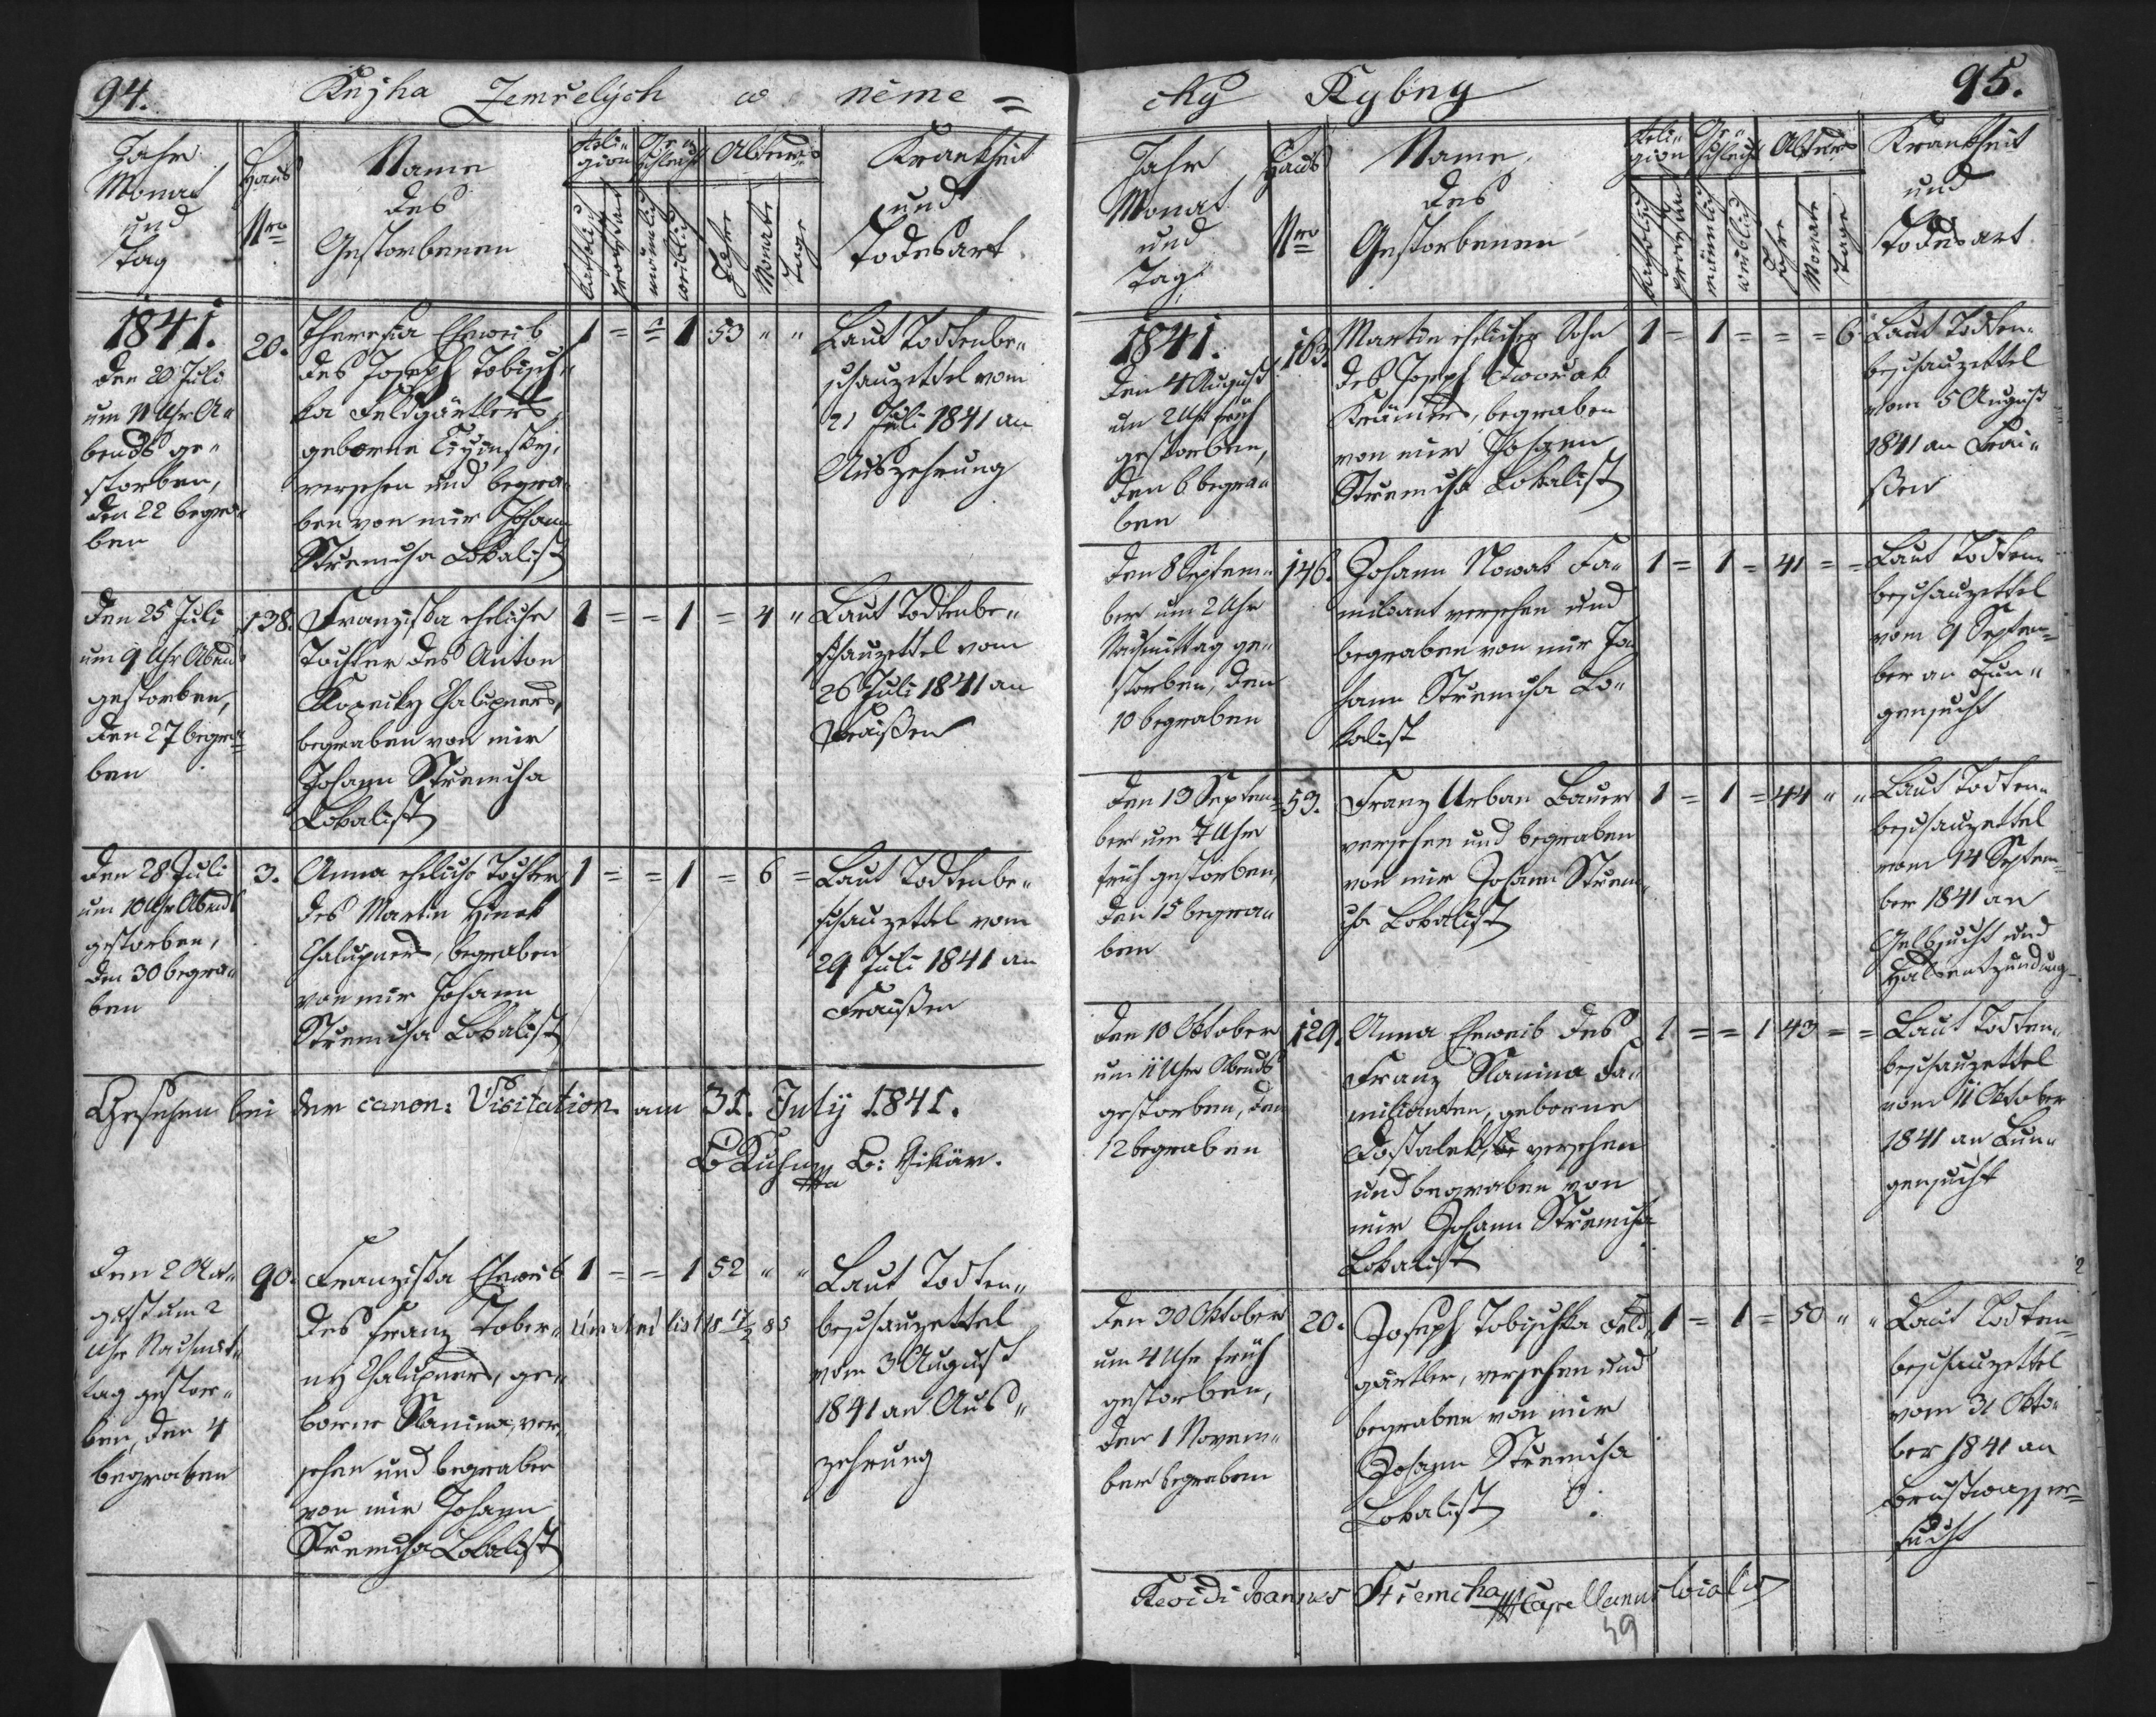 94.
Knjha Zemřelých w něme=
Jahr
Monat
und
Tag
Haus
Nro
Name
des
Gestorbenen
Reli=
gion
katholisch
protestant
Ge=
schlecht
männlich
weiblich
Alter
Jahre
Monate
Tage
Krankheit
und
Todesart
1841.
den 20 Juli
um 11 Uhr A=
bends ge=
storben,
den 22 begra=
ben
20.
Theresia Eheweib
des Joseph Tobisch=
ka Feldgärtlers,
geborne
versehen und begra=
ben von mir Johann
Střemcha Lokalist
1 = = 1 53 " "
Laut Todtenbe=
schauzettel vom
21 Juli 1841 an
Auszehrung
den 25 Juli
um 9 Uhr Abends
gestorben,
den 27 begra=
ben
138.
Franziska eheliche
Tochter des Anton
Kopecky Chalupners,
begraben von mir
Johann Střemcha
Lokalist
1 = = 1 = 4 "
Laut Todtenbe=
schauzettel vom
26 Juli 1841 an
Fraißen
den 28 Juli
um 10 Uhr Abends
gestorben,
den 30 begra=
ben
3.
Anna eheliche Tochter
des Martin Hinek
Chalupners, begraben
von mir Johann
Střemcha Lokalist
1 = = 1 = 6 =
Laut Todtenbe=
schauzettel vom
29 Juli 1841 an
Fraißen
Gesehen bei der canon: Visitation am 31. July 1841.
Kuhn B: Vikär.
den 2 Au=
gust um 2
Uhr Nachmit=
tag gestor=
ben, den 4
begraben
90.
Franziska Eheweib
des Franz Tober=
ny Chalupners, ge=
borne Slanina, ver=
sehen und begraben
von mir Johann
Střemcha Lokalist
1 = = 1 52 " "
Laut Todten=
beschauzettel
vom 3 August
1841 an Aus=
zehrung
cký Rybny
95.
Jahr
Monat
und
Tag
Haus
Nro
Name
des
Gestorbenen
Reli=
gion
katholisch
protestant
Ge=
schlecht
männlich
weiblich
Alter
Jahre
Monate
Tage
Krankheit
und
Todesart
1841.
den 4 August
um 2 Uhr früh
gestorben,
den 6 begra=
ben
163.
Martin ehelicher Sohn
des Joseph Dworak
Krämers, begraben
von mir Johann
Střemcha Lokalist
1 = 1 = = = 6
Laut Todten=
beschauzettel
vom 5 August
1841 an Frai=
ßen
den 8 Septem=
ber um 2 Uhr
Nachmittag ge=
storben, den
10 begraben
146.
Johann Nowak Fa=
miliant versehen und
begraben von mir Jo=
hann Střemcha Lo=
kalist
1 = 1 = 41 = =
Laut Todten=
beschauzettel
vom 9 Septem=
ber an Lun=
gensucht
den 13 Septem=
ber um 7 Uhr
früh gestorben,
den 15 begra=
ben
53.
Franz Urban Bauer
versehen und begraben
von mir Johann Střem=
cha Lokalist
1 = 1 = 44 " "
Laut Todten=
beschauzettel
vom 14 Septem=
ber 1841 an
Gelbsucht und
Halsentzündung
den 10 Oktober
um 11 Uhr Abends
gestorben, den
12 begraben
129.
Anna Eheweib des
Franz Slanina Fa=
milianten, geborne
Dostalek, versehen
und begraben von
mir Johann Střemcha
Lokalist
1 = = 1 43 = =
Laut Todten=
beschauzettel
vom 11 Oktober
1841 an Lun=
gensucht
den 30 Oktober
um 4 Uhr früh
gestorben,
den 1 Novem=
ber begraben
20.
Joseph Tobischka Feld=
gärtler, versehen und
begraben von mir
Johann Střemcha
Lokalist
1 = 1 = 50 " "
Laut Todten=
beschauzettel
vom 31 Okto=
ber 1841 an
Brustwasser=
sucht
Joannes Střemcha Capellanus localis
49